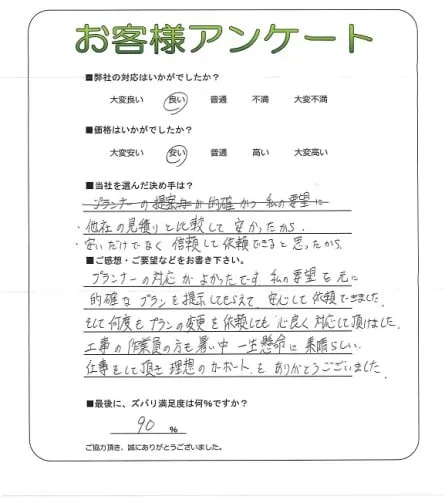 お客様アンケート
■弊社の対応はいかがでしたか?
大変良い 良い 普通 不満 大変不満
■価格はいかがでしたか?
大変安い 安い 普通 高い 大変高い
■当社を選んだ決め手は?
プランナーの提案が的確かつ私の要望に
・他社の見積りと比較して安かったから.
・安いだけでなく信頼して依頼できると思ったから.
■ご感想・ご要望などをお書き下さい。
プランナーの対応がよかったです 私の要望を元に
的確なプランを提示してもらえて、安心して依頼できました.
そして何度もプランの変更を依頼しても心良く対応して頂けました.
工事の作業員の方も暑い中一生懸命に素晴らしい
仕事をして頂き理想のカーポートを ありがとうございました.
■最後に、ズバリ満足度は何%ですか?
90 %
ご協力頂き、誠にありがとうございました。